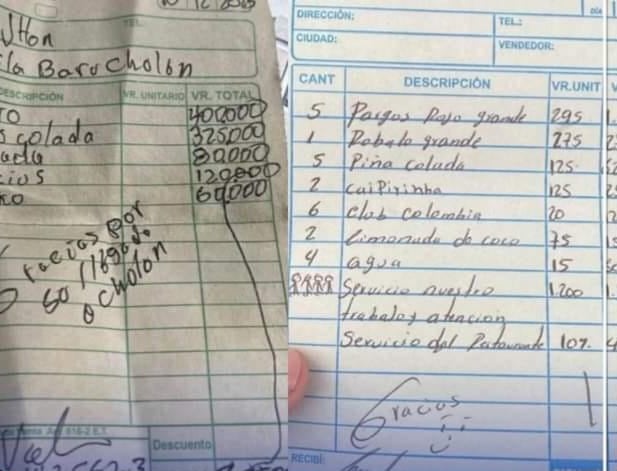 10 12 2025
TEL.
JHon
ila Baru cholon
DESCRIPCIÓN VR. UNITARIO VR. TOTAL
TO 400000
s colada 325000
ada 80000
cios 120000
co 60000
racias por
su llegada
a cholon
Descuento
DÍA
DIRECCIÓN: TEL.:
CIUDAD: VENDEDOR:
CANT DESCRIPCIÓN VR.UNIT V
5 Pargos Rojo grande 295 1.
1 Robalo grande 275 2
5 Piña colada 125
2 caiPirinha 125 2
6 club colombia 20
2 limonada de coco 75 1
4 agua 15
Servicio nuestro 1.200 1.
trabalo y atencion
Servicio del Retaurante 10%. 4
Gracias
RECIBÍ: